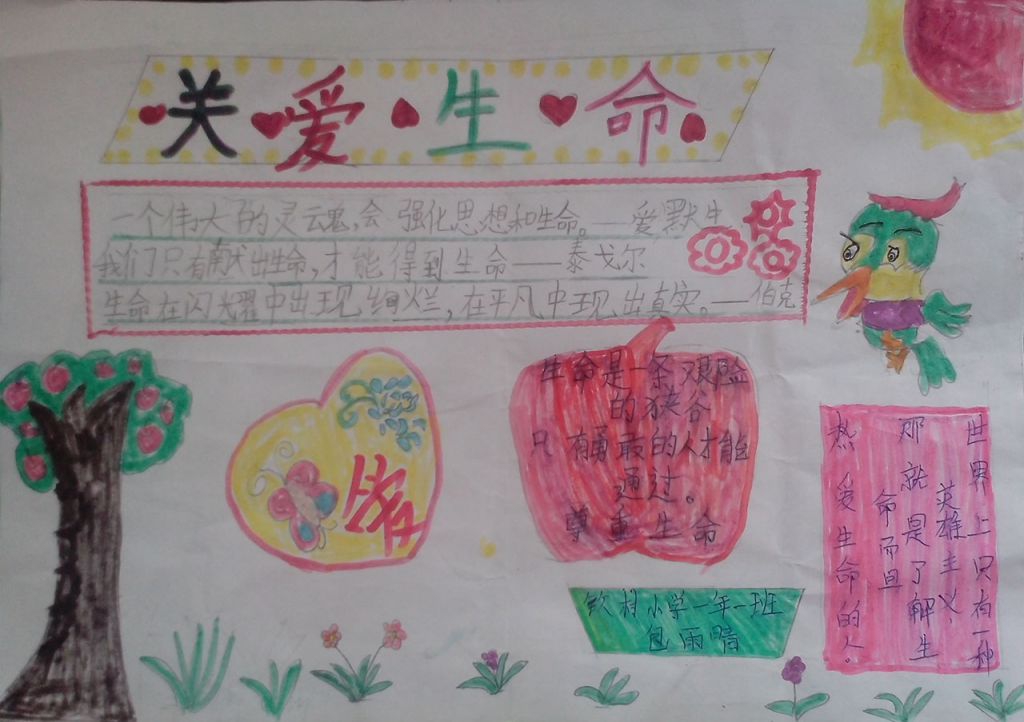 关爱生命
一个伟大的灵云魂,会 强化思想和生命。——爱默生
我们只有献出生命,才能得到生命——泰戈尔
生命在闪光耀中出现绚烂,在平凡中现出真实。—伯克
生命是一条艰险
的狭谷
只有勇敢的人才能
通过。
尊重生命
世界上只有一种
英雄主义、
那就是了解生
命而且
热爱生命的人。
小学一年一班
包雨晴